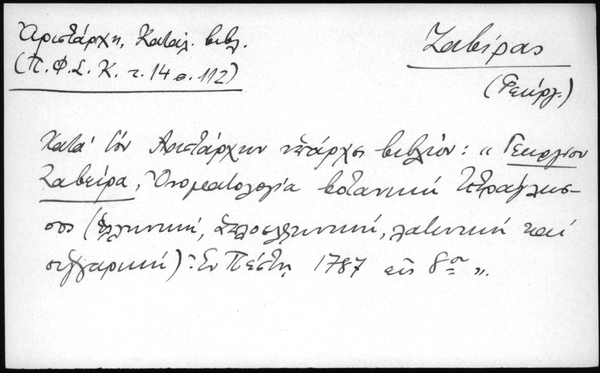 Ἀριστάρχη, Κατάλ. βιβλ.
(Π.Φ.Σ.Κ. τ. 14 σ. 112)
Ζαβίρας
(Γεώργ.)
Κατὰ τὸν Ἀριστάρχην ὑπάρχει βιβλίον: "Γεωργίου
Ζαβείρα, Ὀνοματολογία βοτανικὴ τετράγλωσ-
σος (ἑλληνική, ἁπλοελληνική, λατινικὴ καὶ
οὑγγαρική). Ἐν Πέστῃ 1787 εἰς 8ον".